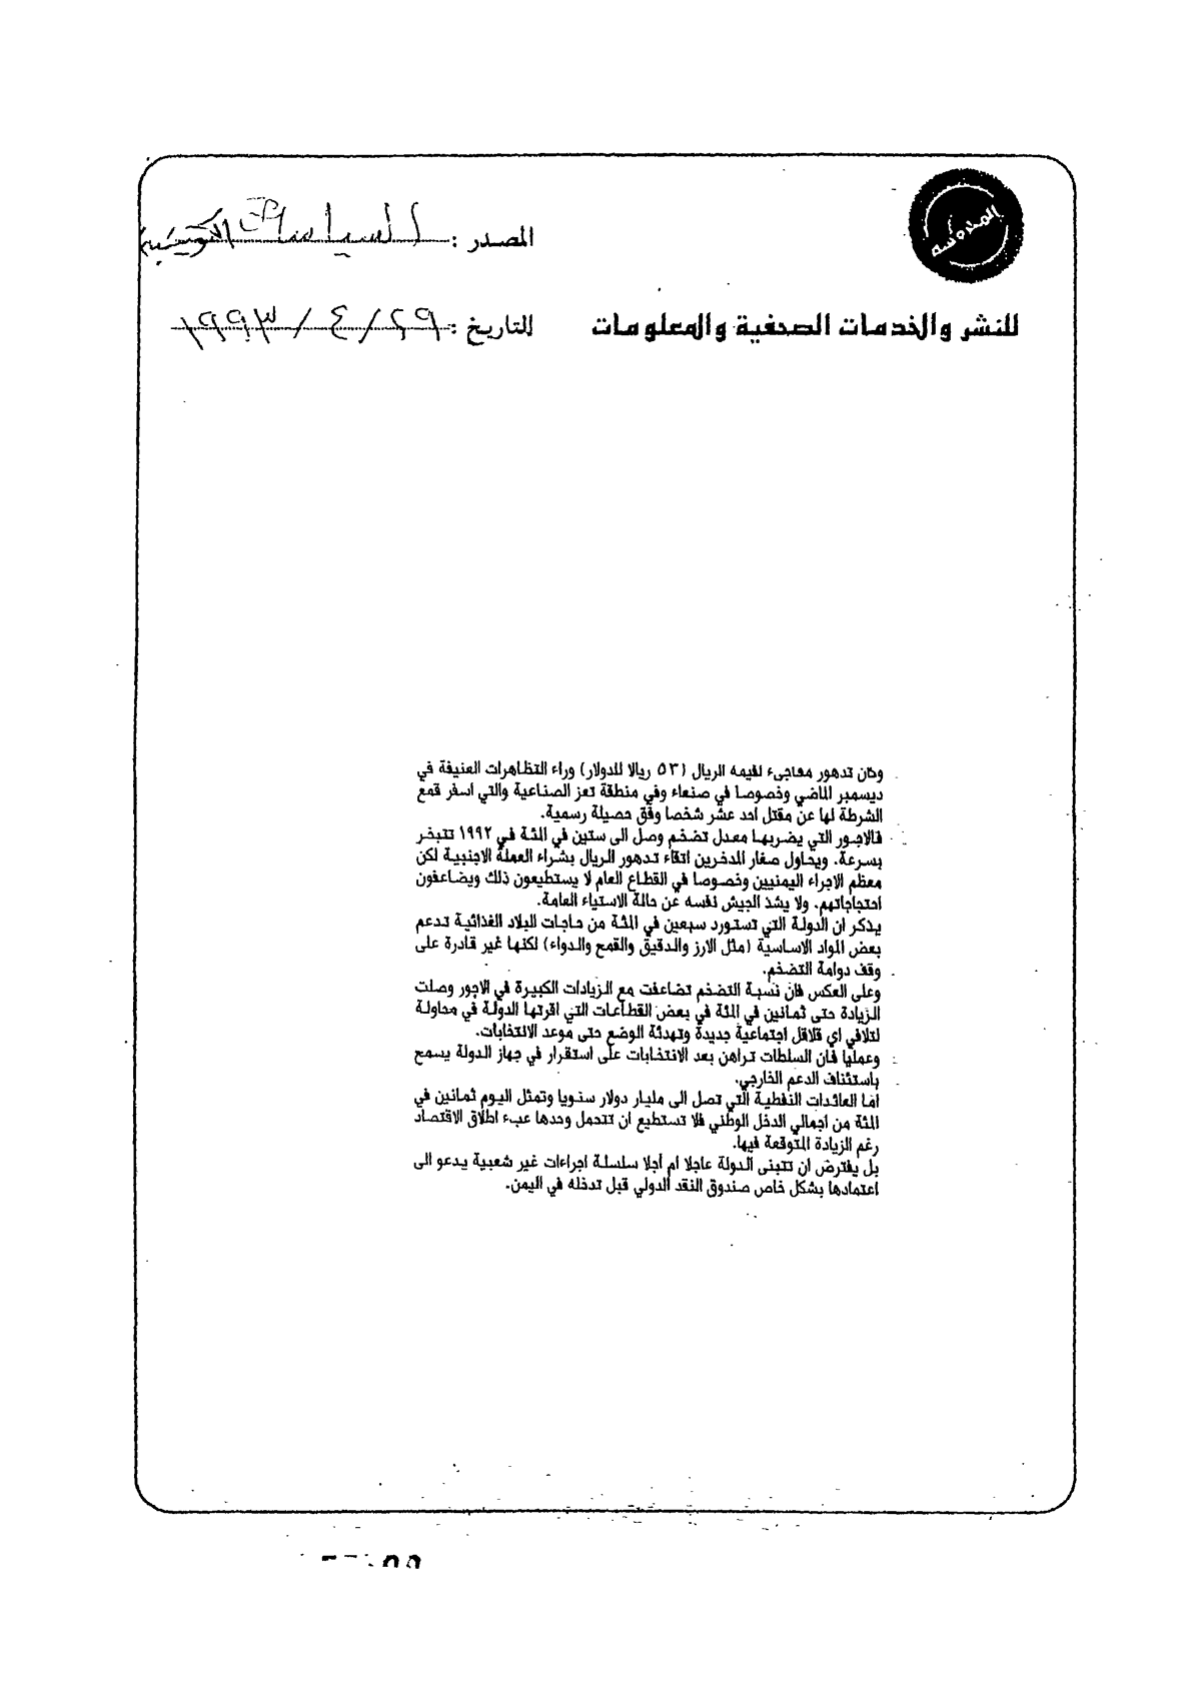 المصدر : السياسة الكويتية
للنشر والخدمات الصحفية والمعلومات
التاريخ : ٢٩ / ٤ / ١٩٩٣
وكان تدهور مفاجىء لقيمة الريال (٥٣ ريالا للدولار) وراء التظاهرات العنيفة في
ديسمبر الماضي وخصوصا في صنعاء وفي منطقة تعز الصناعية والتي اسفر قمع
الشرطة لها عن مقتل احد عشر شخصا وفق حصيلة رسمية.
فالاجور التي يضربها معدل تضخم وصل الى ستين في المئة في ١٩٩٢ تتبخر
بسرعة. ويحاول صغار المدخرين اتقاء تدهور الريال بشراء العملة الاجنبية لكن
معظم الاجراء اليمنيين وخصوصا في القطاع العام لا يستطيعون ذلك ويضاعفون
احتجاجاتهم. ولا يشذ الجيش نفسه عن حالة الاستياء العامة.
يذكر ان الدولة التي تستورد سبعين في المئة من حاجات البلاد الغذائية تدعم
بعض المواد الاساسية (مثل الارز والدقيق والقمح والدواء) لكنها غير قادرة على
وقف دوامة التضخم.
وعلى العكس فان نسبة التضخم تضاعفت مع الزيادات الكبيرة في الاجور وصلت
الزيادة حتى ثمانين في المئة في بعض القطاعات التي اقرتها الدولة في محاولة
لتلافي اي قلاقل اجتماعية جديدة وتهدئة الوضع حتى موعد الانتخابات.
وعمليا فان السلطات تراهن بعد الانتخابات على استقرار في جهاز الدولة يسمح
باستئناف الدعم الخارجي.
اما العائدات النفطية التي تصل الى مليار دولار سنويا وتمثل اليوم ثمانين في
المئة من اجمالي الدخل الوطني فلا تستطيع ان تتحمل وحدها عبء اطلاق الاقتصاد
رغم الزيادة المتوقعة فيها.
بل يفترض ان تتبنى الدولة عاجلا ام أجلا سلسلة اجراءات غير شعبية يدعو الى
اعتمادها بشكل خاص صندوق النقد الدولي قبل تدخله في اليمن.